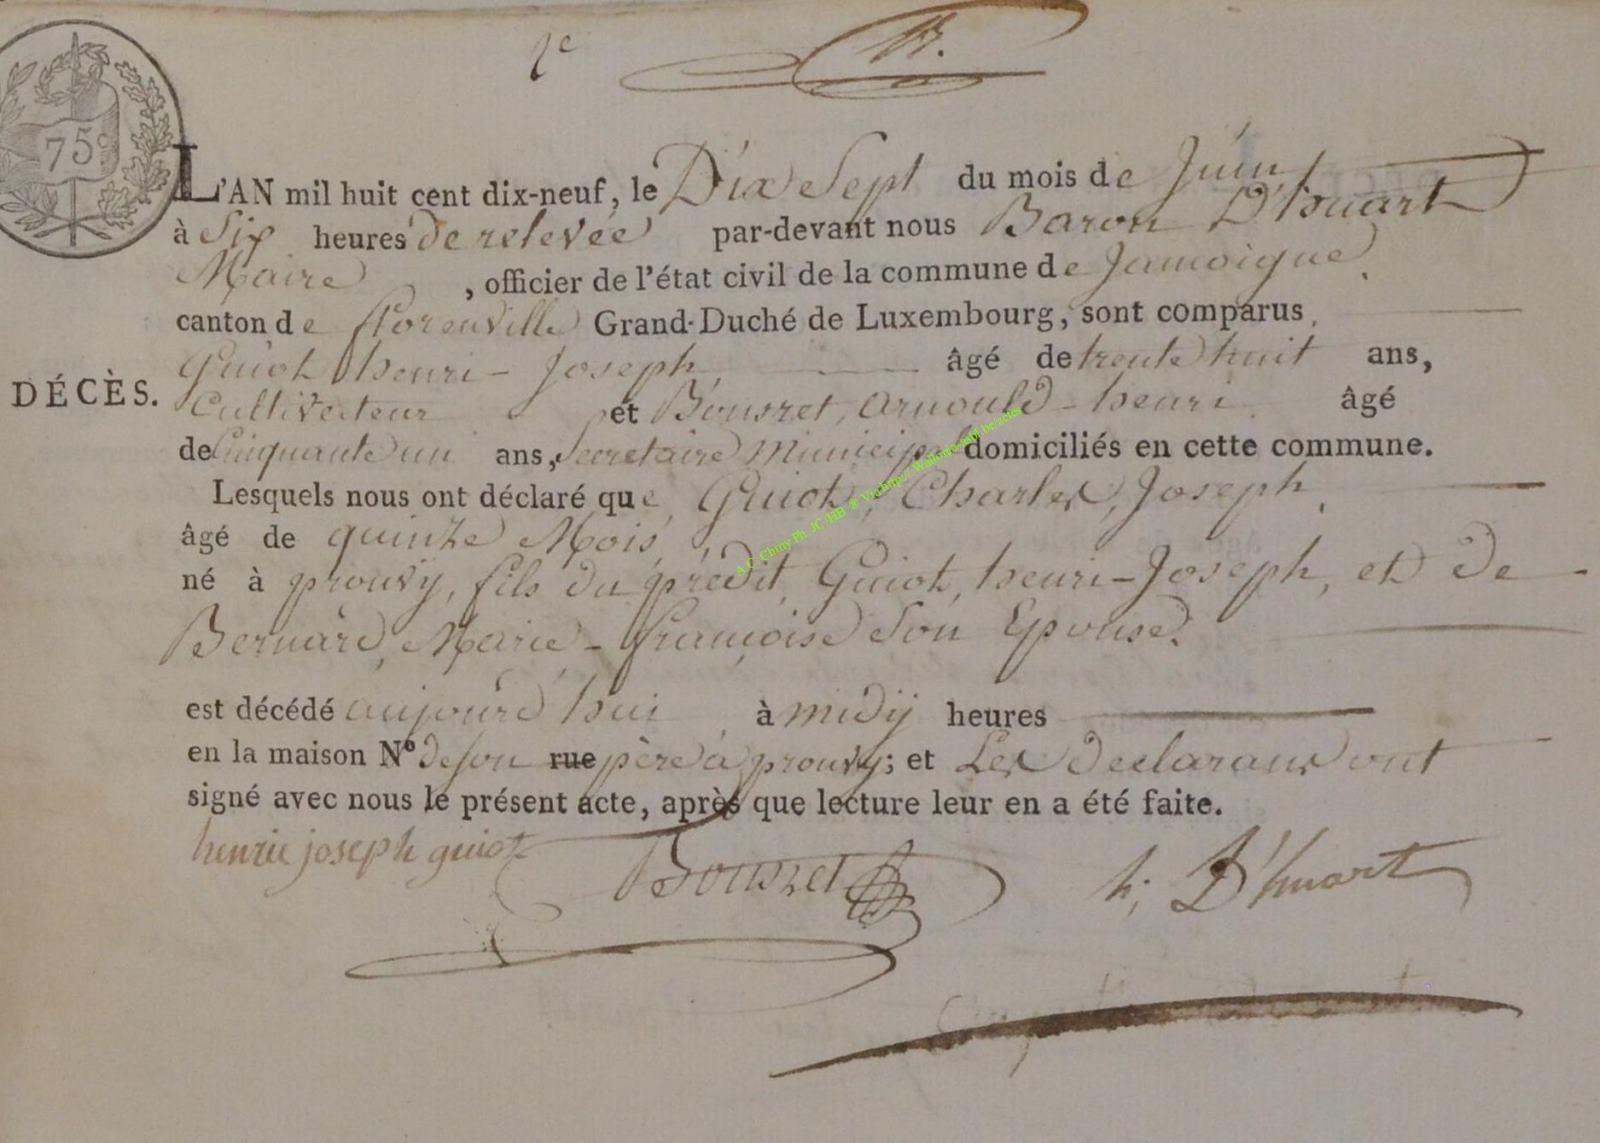 2e
75c
L'AN mil huit cent dix-neuf, le Dix Sept du mois de Juin
à Six heures de relevée par-devant nous Baron D'huart
Maire, officier de l'état civil de la commune de Jamoigne,
canton de florenville Grand-Duché de Luxembourg, sont comparus,
Guiot henri-Joseph âgé de trente huit ans,
DÉCÈS.
Cultivateur et Bousret, arnould-henri âgé
de Cinquante un ans, Secretaire Municipal domiciliés en cette commune.
Lesquels nous ont déclaré que Guiot, Charles, Joseph,
âgé de quinze Mois,
né à prouvy, fils du prédit Guiot, henri-Joseph, et de
Bernard, Marie-françoise Son Epouse.
est décédé aujourd'hui à midy heures
en la maison N° de son rue père à prouvy; et Les declarans ont
signé avec nous le présent acte, après que lecture leur en a été faite.
henrie joseph guiot Bousret h; D'huart